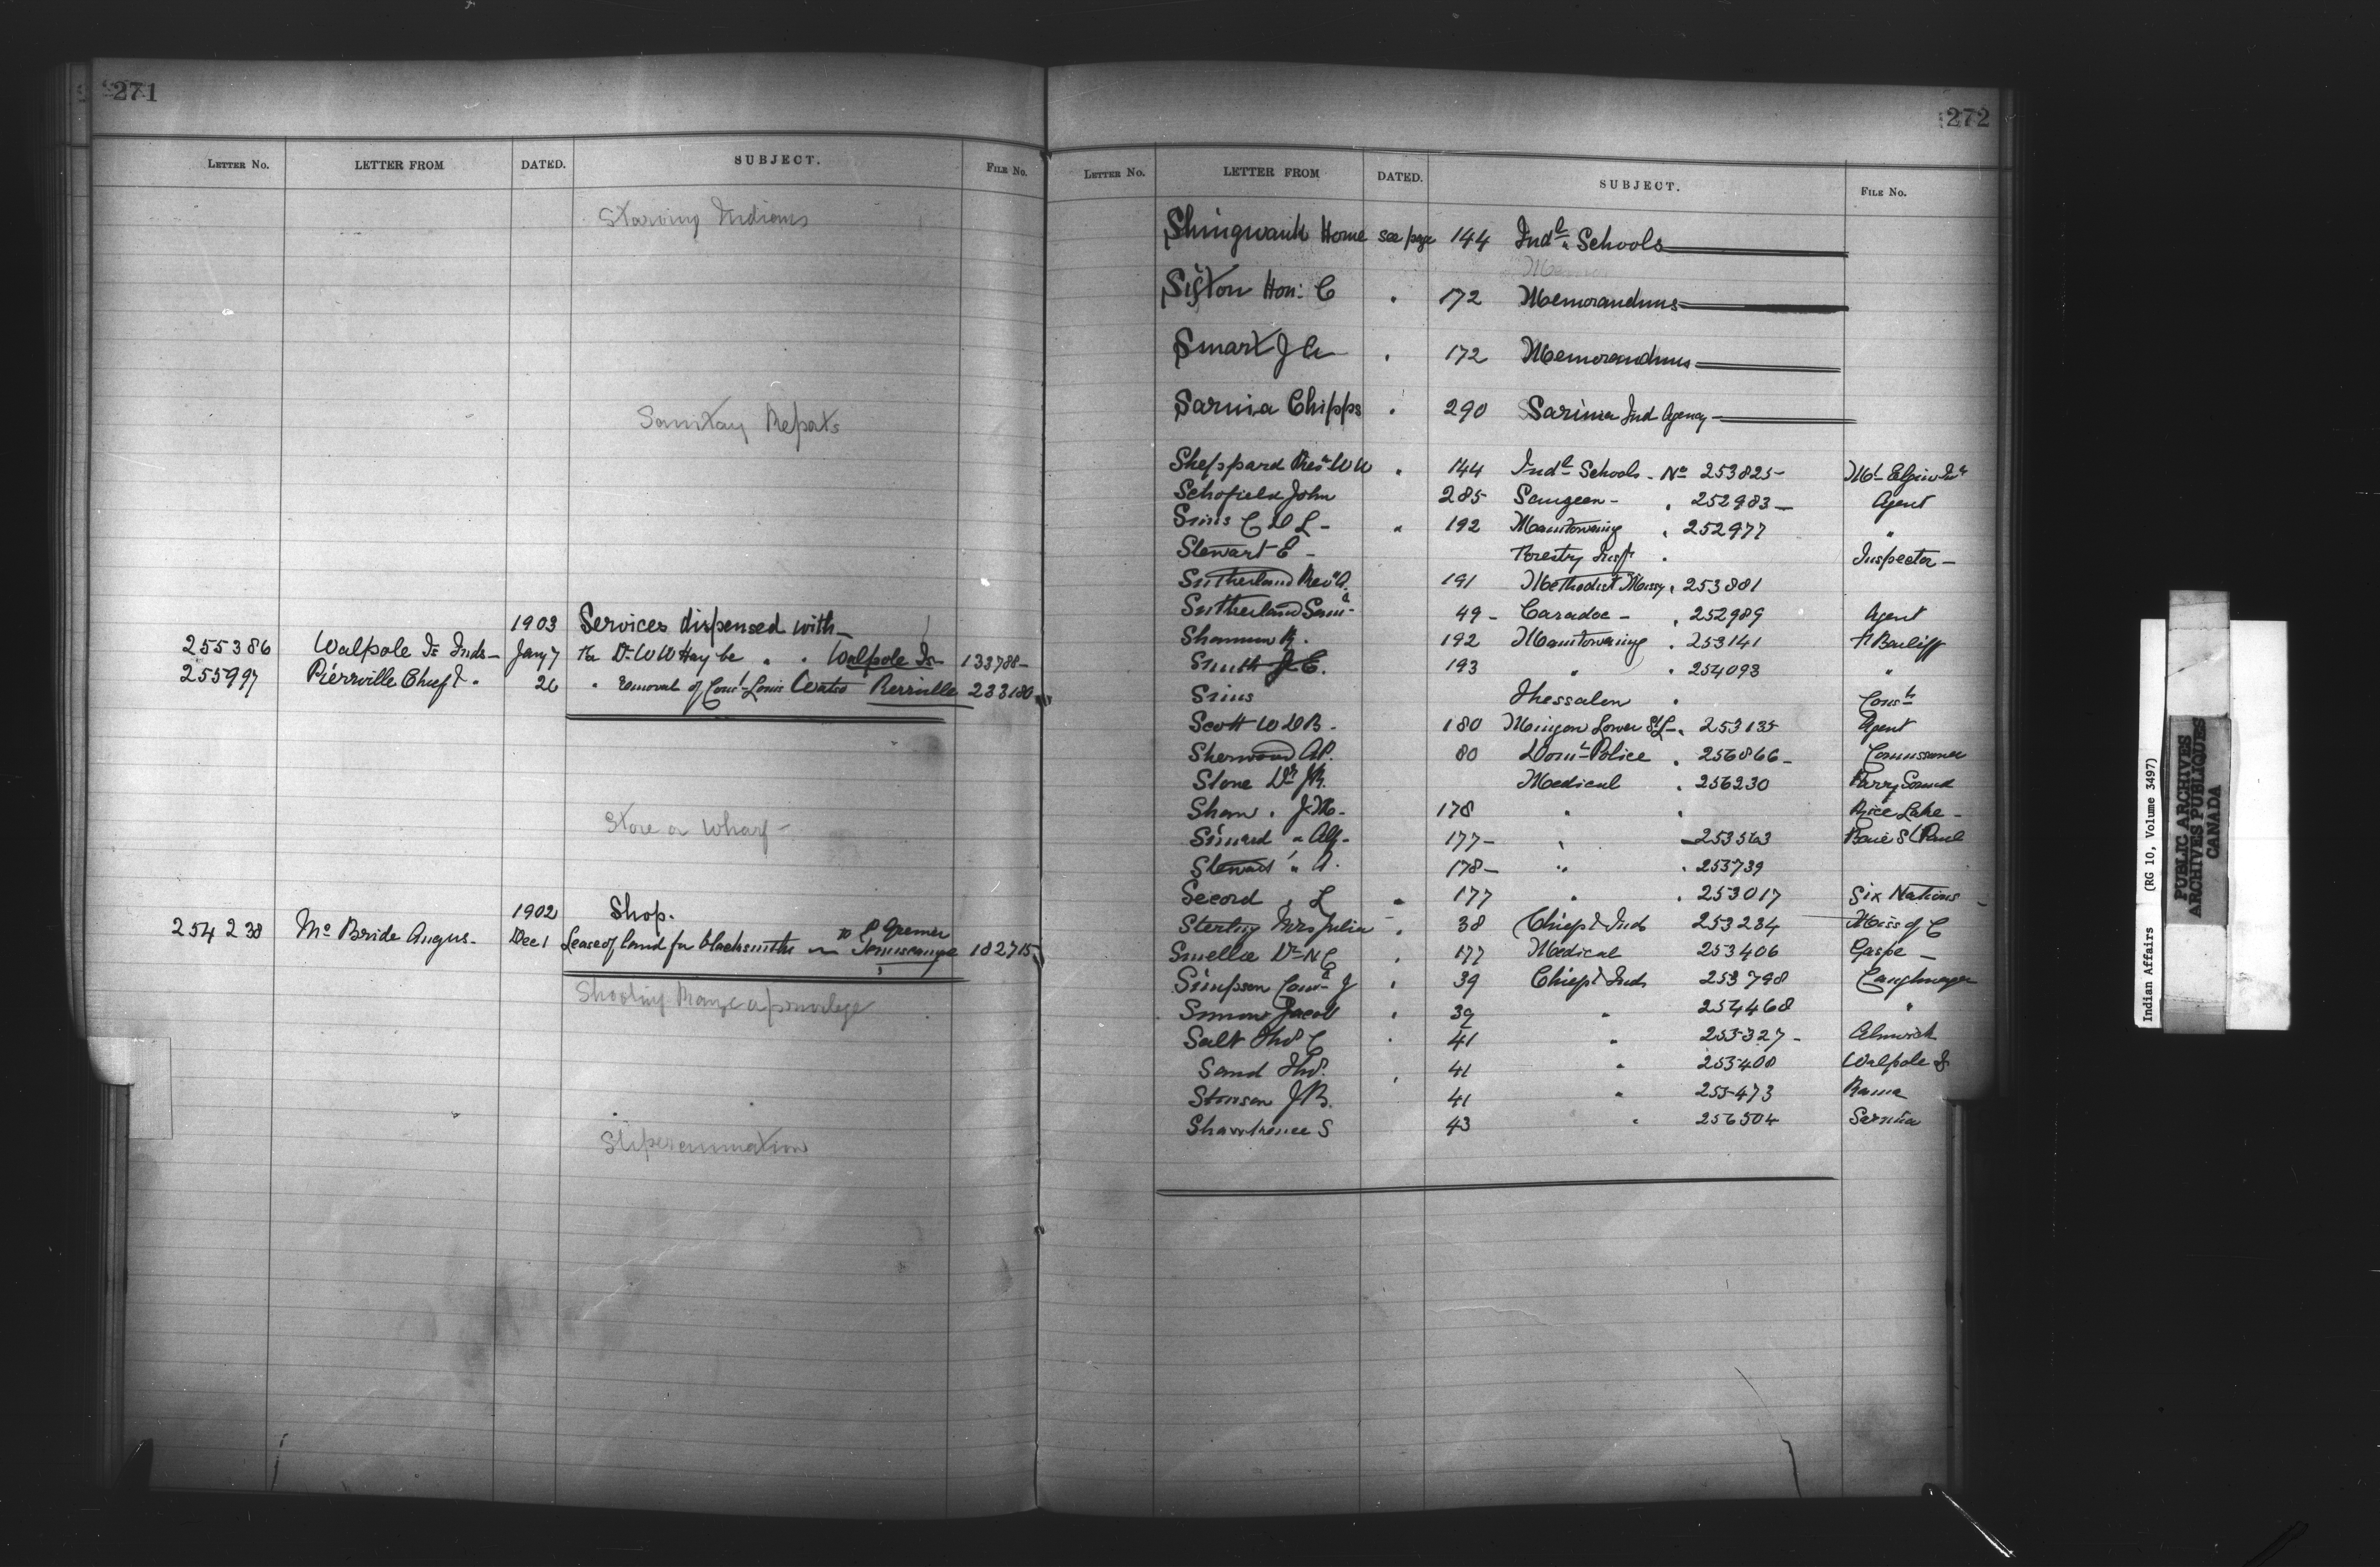 271
LETTER NO. LETTER FROM DATED. SUBJECT. FILE NO.
Starving Indians
Sanitay Reports
1903 Services dispensed with
255386 Walpole Is Inds - Jany 7 For Dr W W Hay be " " Walpole Is - 133788 -
255997 Pierrville Chief " 26 " removal of Louis Pierrville 233180
Store on Wharf -
1902 Shop.
to
254238 Mc Bride Angus - Dec 1 Lease of land for blacksmiths Temiscamque 182715
Shooting Range a privilege
Superannuation
272
LETTER NO. LETTER FROM DATED. SUBJECT. FILE NO.
Shingwauk Home see page 144 Indl Schools
Sifton Hon: C " 172 Memorandums
Smart J A " 172 Memorandums
Sarnia Chipps " 290 Sarnia Ind Agency
Sheppard Revd W W " 144 Indl Schools - No 253825 - Mt Elgin Inst
Schofield John 285 Saugeen - " 252983 - Agent
Sims C D L - " 192 Manitowaning " 252977 "
Stewart E - Forestry Insp " Inspector -
Sutherland Revd A. 191 Methodist Missy " 253881
Sutherland Saml - 49 - Caradoc - " 252989 Agent
Shannon R. 192 Manitowaning " 253141
Smith J. E. 193 " " 254093 "
Sims Thessalon " Const
Scott W D B - 180 Mingan Lower St L - " 253135 Agent
Sherwood AP. 80 Domn Police " 256866 - Commissioner
Stone Dr J R. Medical " 256230 Parry Sound
Shaw " J. M. 178 " " Rice Lake -
Simard " Alf - 177 - " 253563 Baie St Paul
Stewart " A. 178 - " " 253739
Secord " L " 177 " " 253017 Six Nations
Sterling Mrs Julia " 38 Chiefs & Inds 253284 Miss of C
Smellie Dr N C " 177 Medical 253406 Gaspe -
Simpson J " 39 Chief & Inds 253798 Caughnawaga
Simons Jacob " 39 " 254468 "
Salt Thos C " 41 " 255327 - Alnwick
Sand Thos. " 41 " 255408 Walpole I
Stinson J B. 41 " 255473 Rama
Shawkence S 43 " 256504 Sarnia
Indian Affairs (RG 10, Volume 3497)
PUBLIC ARCHIVES
ARCHIVES PUBLIQUES
CANADA